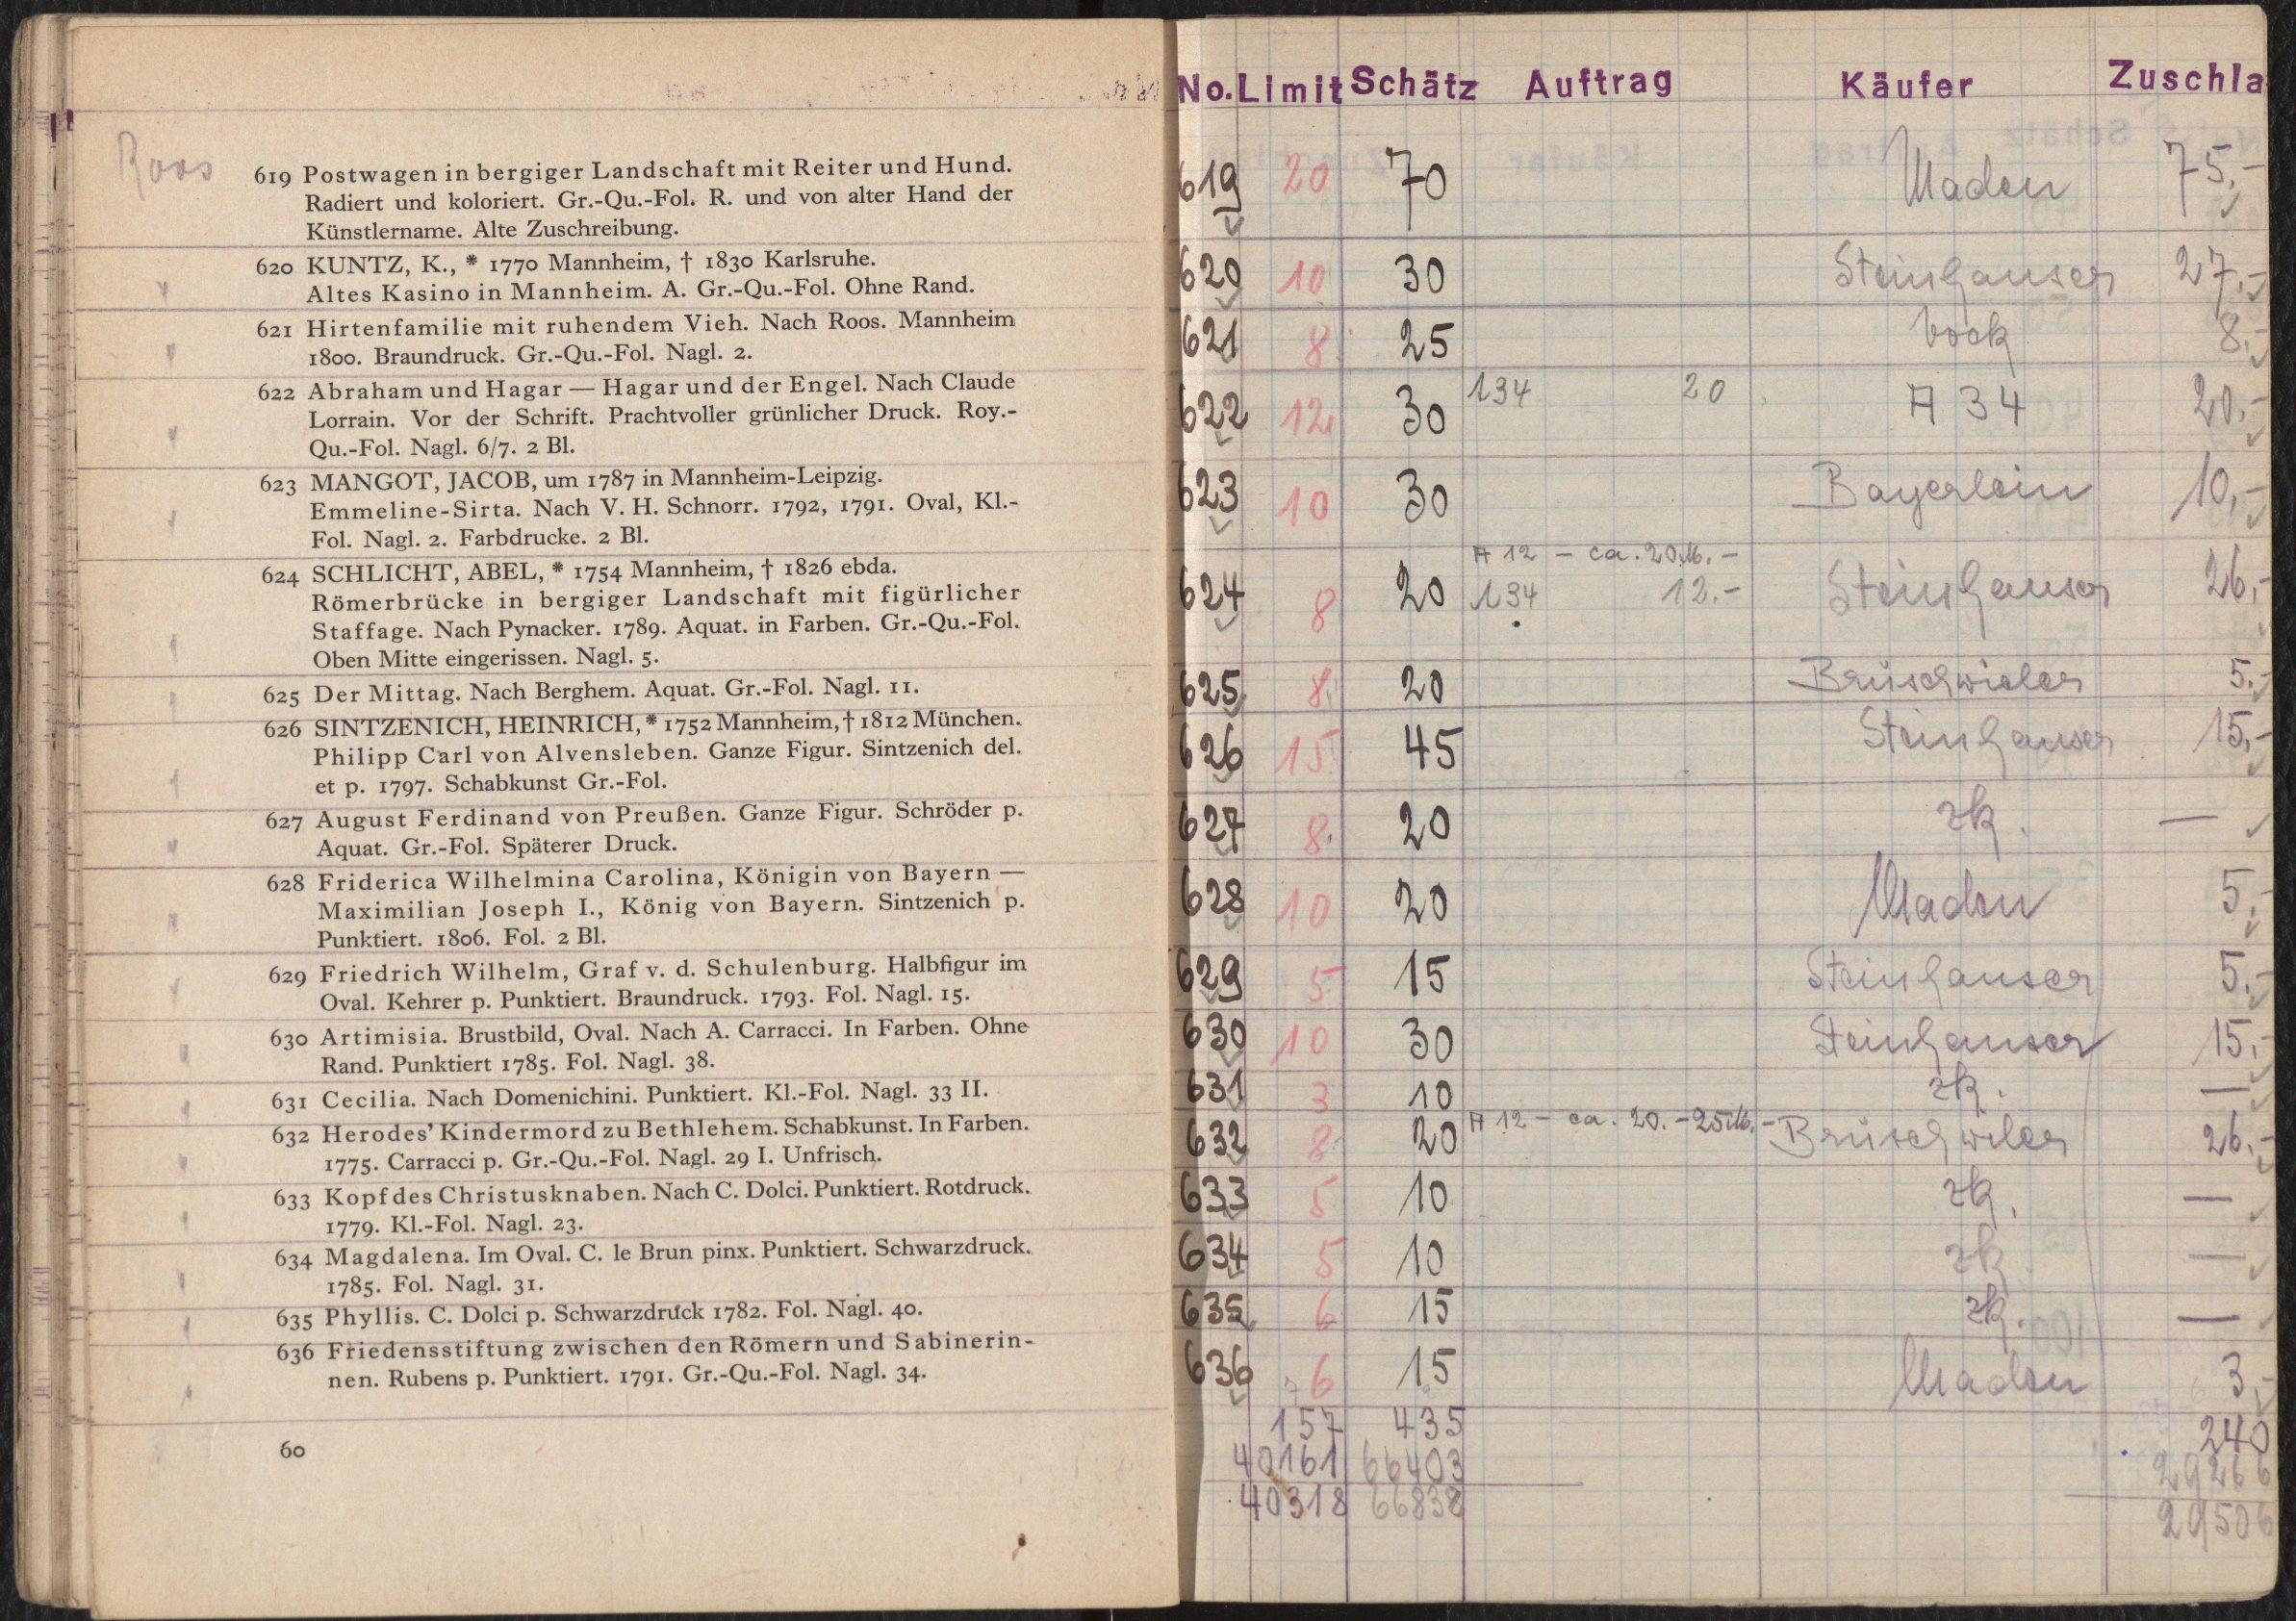 Roos
619 Postwagen in bergiger Landschaft mit Reiter und Hund.
Radiert und koloriert. Gr.-Qu.-Fol. R. und von alter Hand der
Künstlername. Alte Zuschreibung.
620 KUNTZ, K., * 1770 Mannheim, † 1830 Karlsruhe.
Altes Kasino in Mannheim. A. Gr.-Qu.-Fol. Ohne Rand.
621 Hirtenfamilie mit ruhendem Vieh. Nach Roos. Mannheim
1800. Braundruck. Gr.-Qu.-Fol. Nagl. 2.
622 Abraham und Hagar — Hagar und der Engel. Nach Claude
Lorrain. Vor der Schrift. Prachtvoller grünlicher Druck. Roy.-
Qu.-Fol. Nagl. 6/7. 2 Bl.
623 MANGOT, JACOB, um 1787 in Mannheim-Leipzig.
Emmeline-Sirta. Nach V. H. Schnorr. 1792, 1791. Oval, Kl.-
Fol. Nagl. 2. Farbdrucke. 2 Bl.
624 SCHLICHT, ABEL, * 1754 Mannheim, † 1826 ebda.
Römerbrücke in bergiger Landschaft mit figürlicher
Staffage. Nach Pynacker. 1789. Aquat. in Farben. Gr.-Qu.-Fol.
Oben Mitte eingerissen. Nagl. 5.
625 Der Mittag. Nach Berghem. Aquat. Gr.-Fol. Nagl. 11.
626 SINTZENICH, HEINRICH, * 1752 Mannheim, † 1812 München.
Philipp Carl von Alvensleben. Ganze Figur. Sintzenich del.
et p. 1797. Schabkunst Gr.-Fol.
627 August Ferdinand von Preußen. Ganze Figur. Schröder p.
Aquat. Gr.-Fol. Späterer Druck.
628 Friderica Wilhelmina Carolina, Königin von Bayern —
Maximilian Joseph I., König von Bayern. Sintzenich p.
Punktiert. 1806. Fol. 2 Bl.
629 Friedrich Wilhelm, Graf v. d. Schulenburg. Halbfigur im
Oval. Kehrer p. Punktiert. Braundruck. 1793. Fol. Nagl. 15.
630 Artimisia. Brustbild, Oval. Nach A. Carracci. In Farben. Ohne
Rand. Punktiert 1785. Fol. Nagl. 38.
631 Cecilia. Nach Domenichini. Punktiert. Kl.-Fol. Nagl. 33 II.
632 Herodes' Kindermord zu Bethlehem. Schabkunst. In Farben.
1775. Carracci p. Gr.-Qu.-Fol. Nagl. 29 I. Unfrisch.
633 Kopf des Christusknaben. Nach C. Dolci. Punktiert. Rotdruck.
1779. Kl.-Fol. Nagl. 23.
634 Magdalena. Im Oval. C. le Brun pinx. Punktiert. Schwarzdruck.
1785. Fol. Nagl. 31.
635 Phyllis. C. Dolci p. Schwarzdruck 1782. Fol. Nagl. 40.
636 Friedensstiftung zwischen den Römern und Sabinerin-
nen. Rubens p. Punktiert. 1791. Gr.-Qu.-Fol. Nagl. 34.
60
No. Limit Schätz Auftrag Käufer Zuschla
619 20 70 Maden 75,-
620 10 30 Steinhauser 27,-
621 8 25 bock 8,-
622 12 30 134 20 A 34 20,-
623 10 30 Bayerlein 10,-
A 12 - ca. 20 M. -
624 8 20 134 12.- Steinhauser 26,-
625 8 20 Brüschwieler 5.-
626 15 45 Steinhauser 15,-
627 8 20 zk. —
628 10 20 Maden 5,-
629 5 15 Steinhauser 5,-
630 10 30 Steinhauser 15,-
631 3 10 zk. —
632 8 20 A 12 - ca. 20.-25 M. - Brüschwiler 26.-
633 5 10 zk. —
634 5 10 zk —
635 6 15 zk. —
636 6 15 Maden 3,-
157 435 240
40161 66403 29266
40318 66838 29506